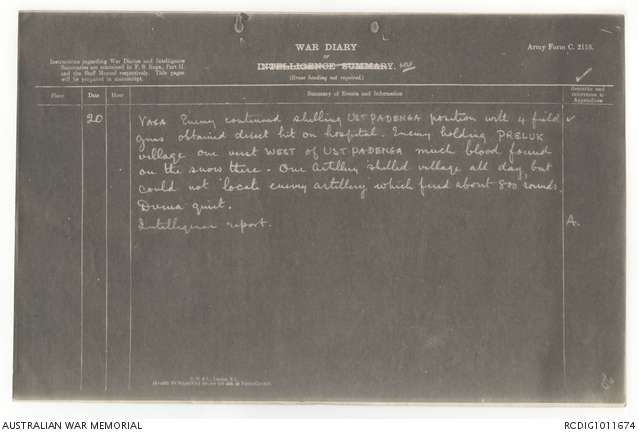 WAR DIARY
OF
INTELLIGENCE SUMMARY.
(Erase heading not required.)
Army Form C. 2118.
Instructions regarding War Diaries and Intelligence
Summaries are contained in F. S. Regs., Part II.
and the Staff Manual respectively. Title pages
will be prepared in manuscript.
Place Date Hour Summary of Events and Information Remarks and
references to
Appendices
20 VAGA Enemy continued shelling UST PADENGA position with 4 field
guns obtained direct hit on hospital. Enemy holding PRELUK
village one verst WEST of UST-PADENGA much blood found
on the snow there. Our Artillery shelled village all day, but
could not locate enemy artillery which fired about 800 rounds.
Dvina quiet.
Intelligence report. A.
AUSTRALIAN WAR MEMORIAL
RCDIG1011674